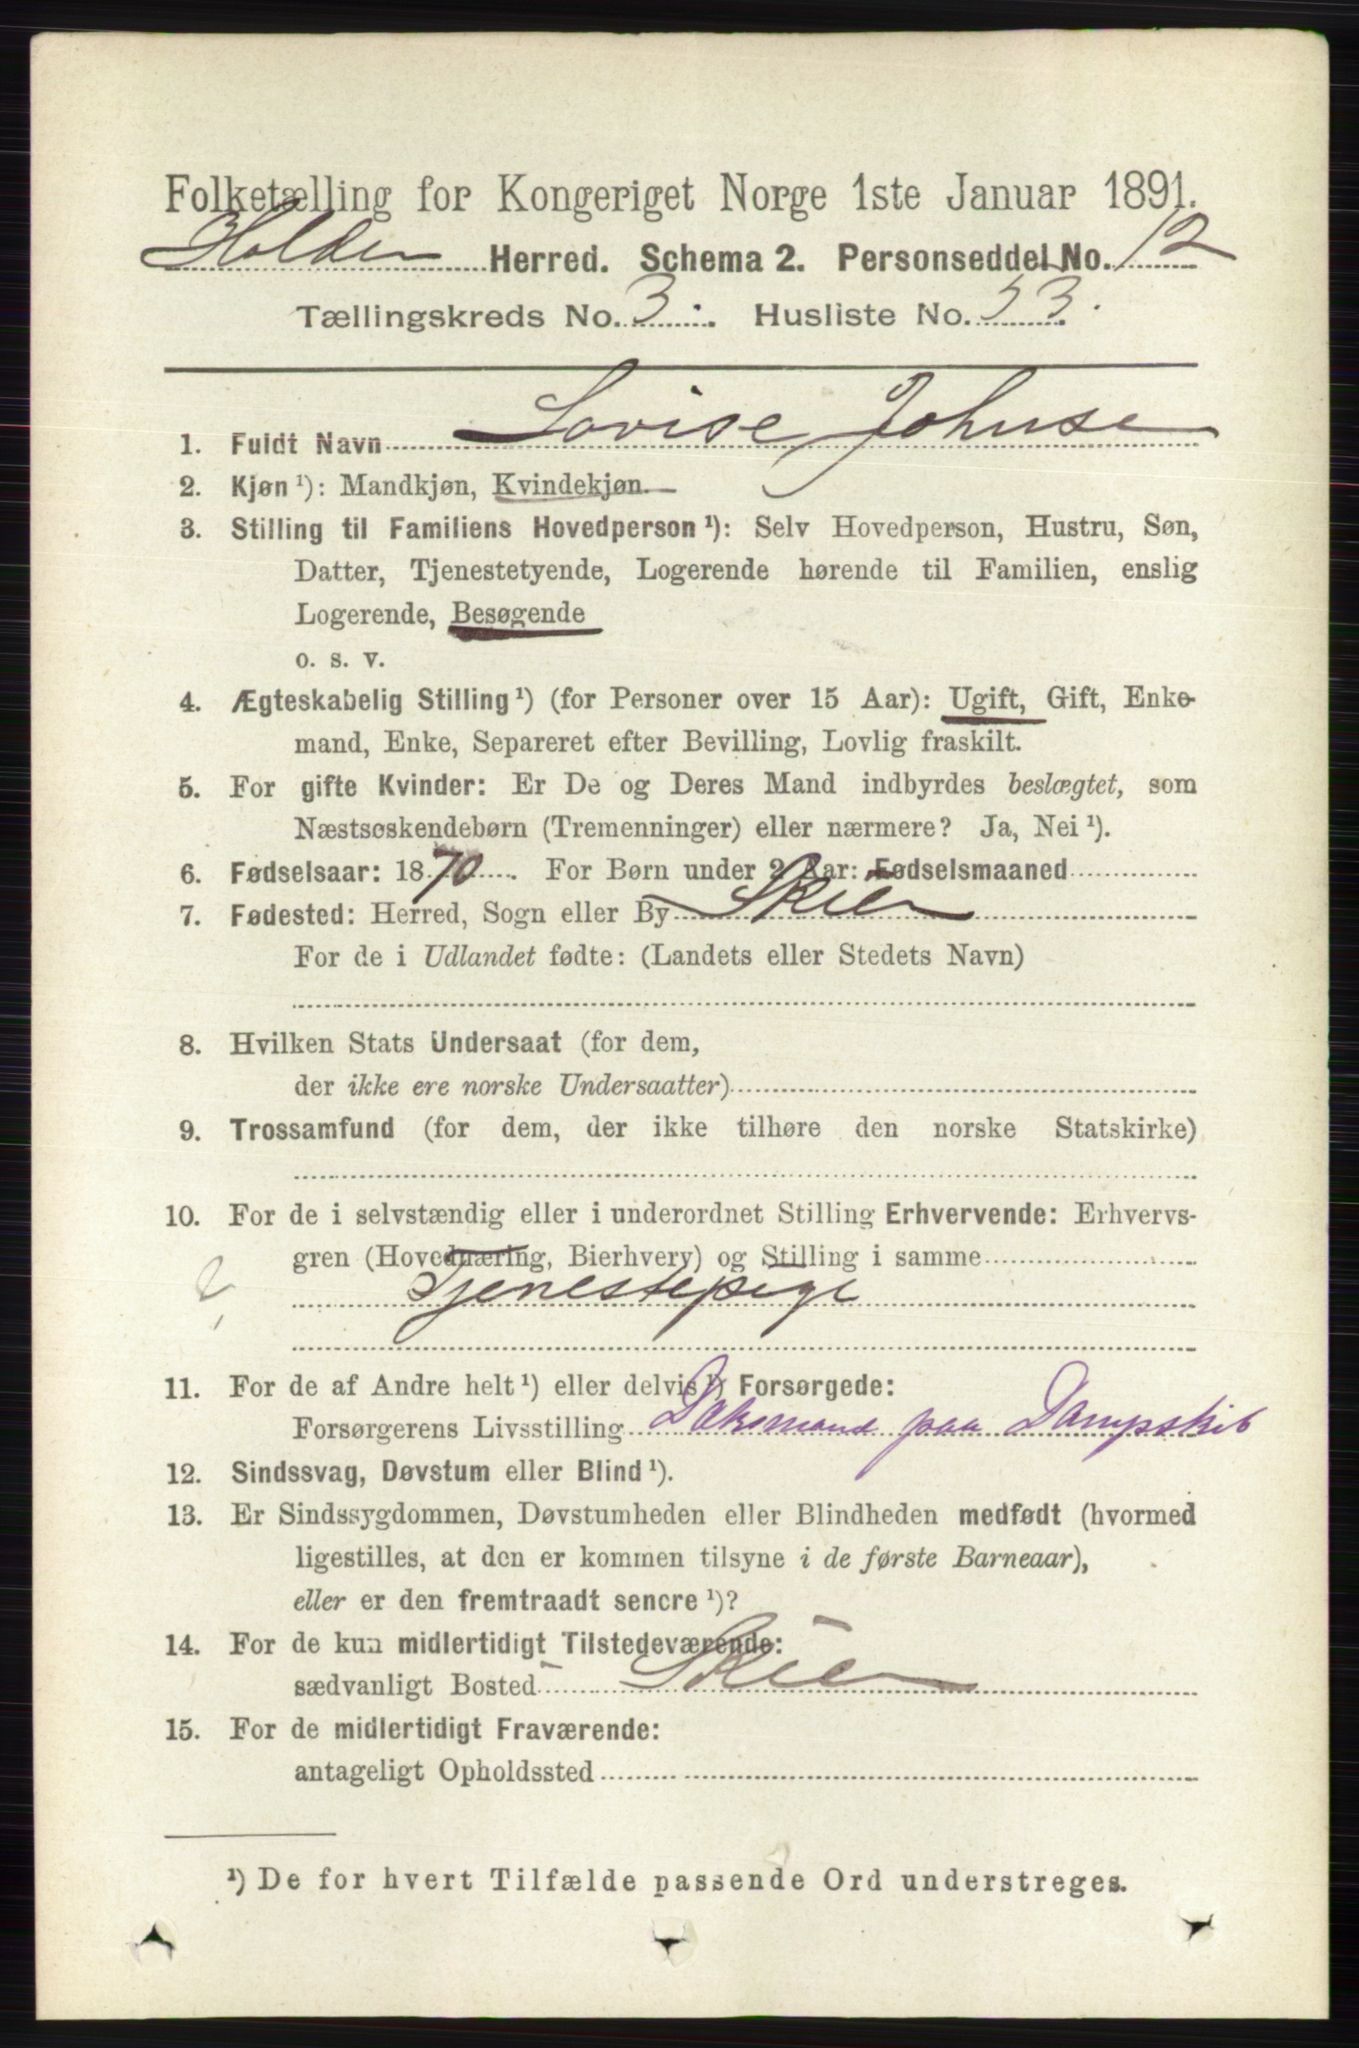 Folketælling for Kongeriget Norge 1ste Januar 1891.
Holden Herred. Schema 2. Personseddel No. 12
Tællingskreds No. 3. Husliste No. 53.
1. Fuldt Navn Lovise Johnse
2. Kjøn ¹): Mandkjøn, Kvindekjøn.
3. Stilling til Familiens Hovedperson ¹): Selv Hovedperson, Hustru, Søn,
Datter, Tjenestetyende, Logerende hørende til Familien, enslig
Logerende, Besøgende
o. s. v.
4. Ægteskabelig Stilling ¹) (for Personer over 15 Aar): Ugift, Gift, Enke-
mand, Enke, Separeret efter Bevilling, Lovlig fraskilt.
5. For gifte Kvinder: Er De og Deres Mand indbyrdes beslægtet, som
Næstsøskendebørn (Tremenninger) eller nærmere? Ja, Nei ¹).
6. Fødselsaar: 1870. For Børn under 2 Aar: Fødselsmaaned
7. Fødested: Herred, Sogn eller By Skien
For de i Udlandet fødte: (Landets eller Stedets Navn)
8. Hvilken Stats Undersaat (for dem,
der ikke ere norske Undersaatter)
9. Trossamfund (for dem, der ikke tilhøre den norske Statskirke)
10. For de i selvstændig eller i underordnet Stilling Erhvervende: Erhvervs-
gren (Hovednæring, Bierhverv) og Stilling i samme
Tjenestepige
11. For de af Andre helt ¹) eller delvis ¹) Forsørgede:
Forsørgerens Livsstilling Dæksmand paa Dampskib
12. Sindssvag, Døvstum eller Blind ¹).
13. Er Sindssygdommen, Døvstumheden eller Blindheden medfødt (hvormed
ligestilles, at den er kommen tilsyne i de første Barneaar),
eller er den fremtraadt senere ¹)?
14. For de kun midlertidigt Tilstedeværende:
sædvanligt Bosted Skien
15. For de midlertidigt Fraværende:
antageligt Opholdssted
¹) De for hvert Tilfælde passende Ord understreges.